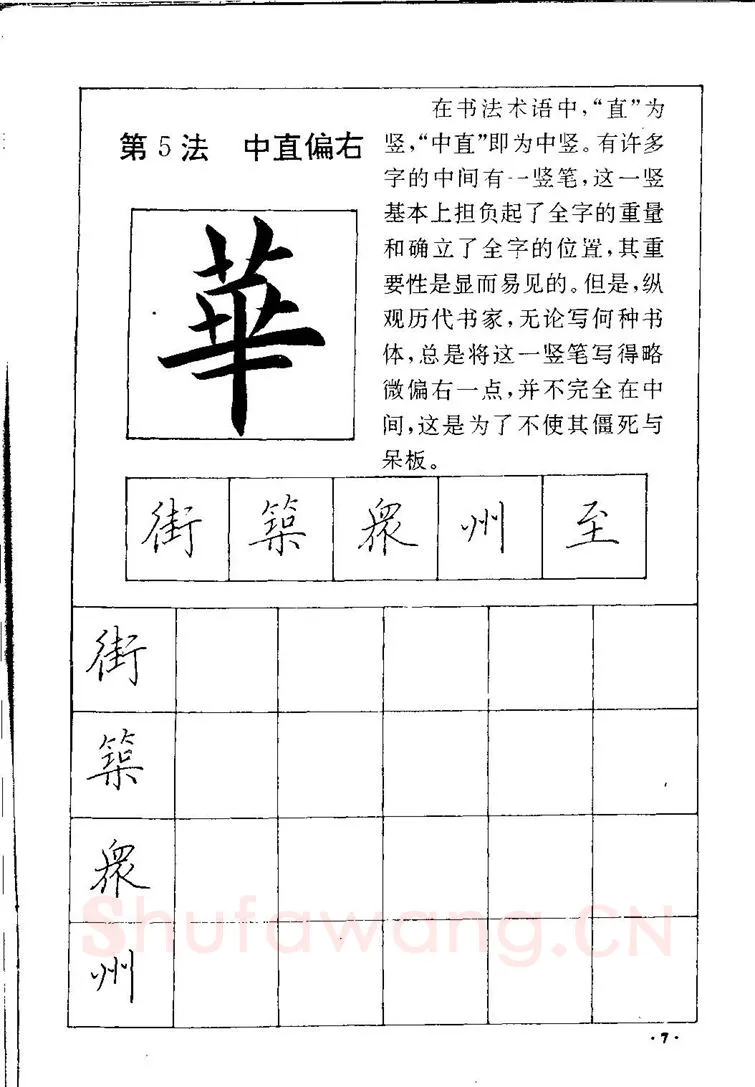 第5法　中直偏右
在书法术语中，“直”为
竖，“中直”即为中竖。有许多
字的中间有一竖笔，这一竖
基本上担负起了全字的重量
和确立了全字的位置，其重
要性是显而易见的。但是，纵
观历代书家，无论写何种书
体，总是将这一竖笔写得略
微偏右一点，并不完全在中
间，这是为了不使其僵死与
呆板。
華
街 築 眾 州 至
街
築
眾
州
Shufawang.CN
·7·